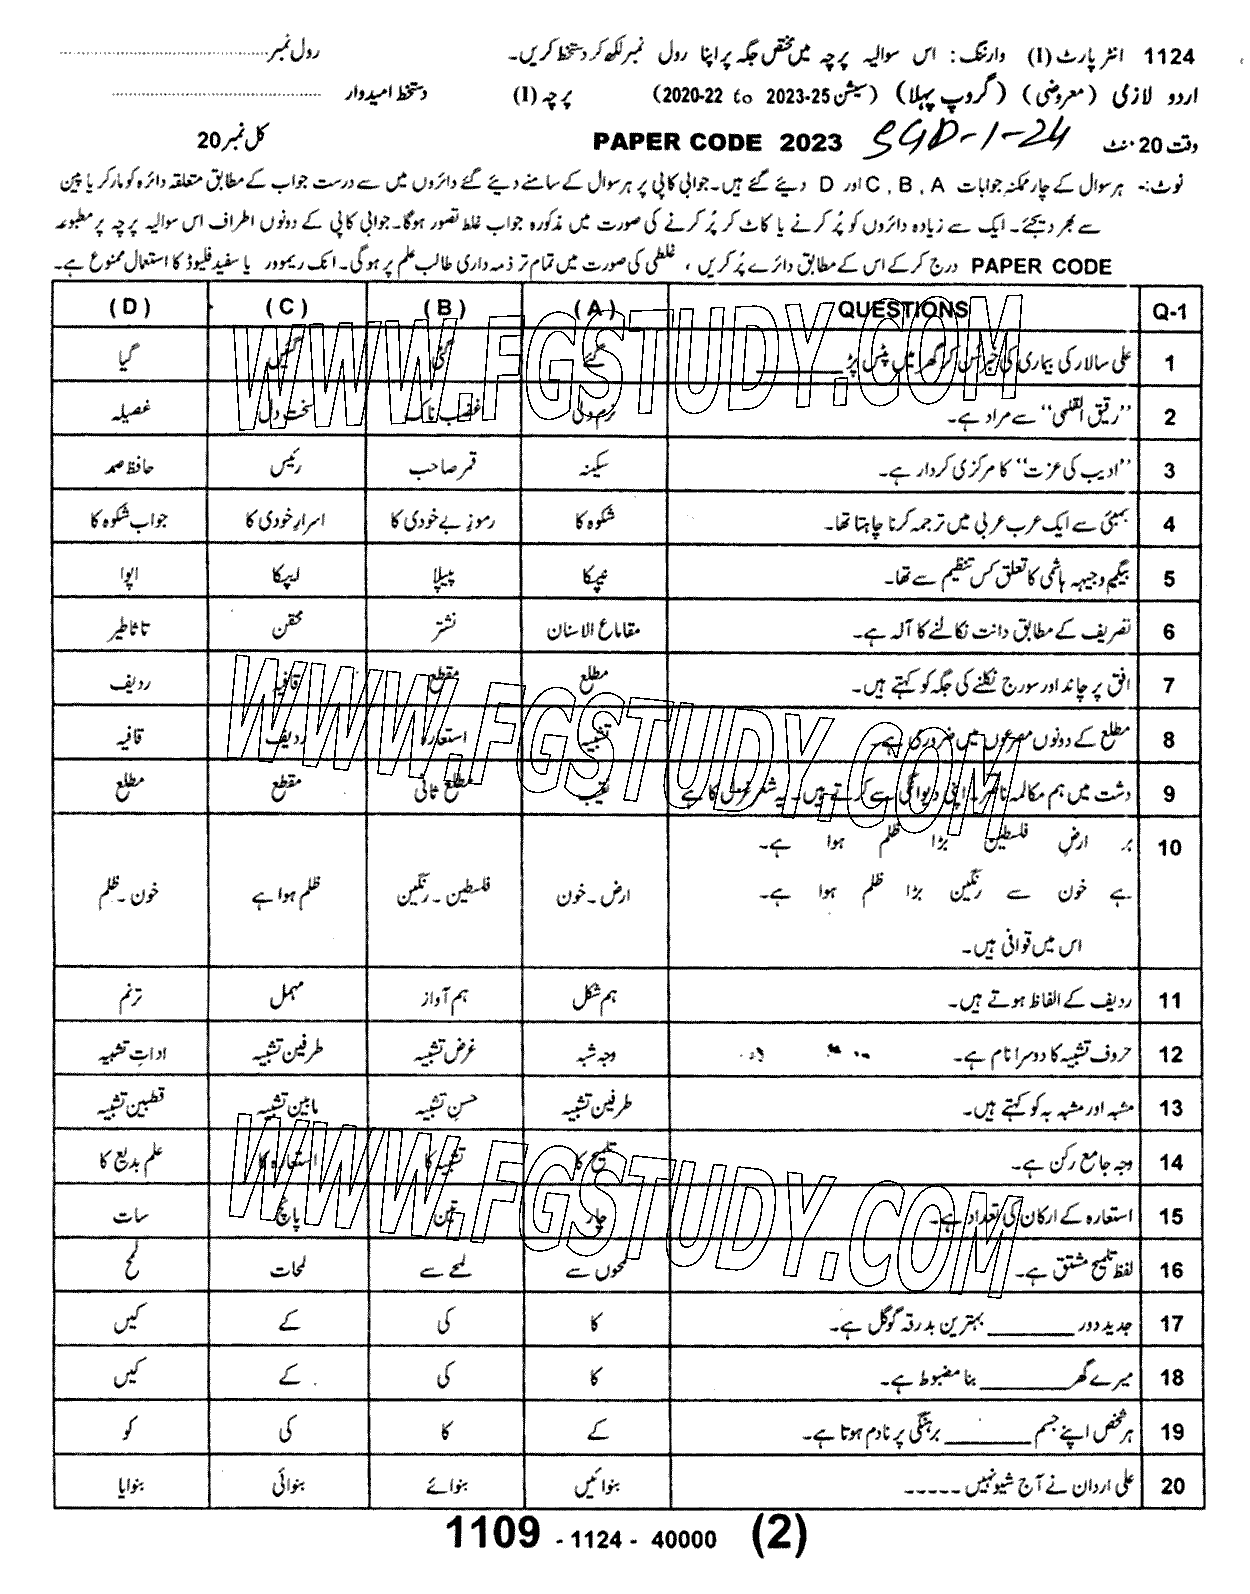 1124 انٹر پارٹ (I) وارننگ: اس سوالیہ پرچہ میں مختص جگہ پر اپنا رول نمبر لکھ کر دستخط کریں۔ رول نمبر
اردو لازمی (معروضی) (گروپ پہلا) (سیشن 2023-25 to 2020-22) پرچہ (I) دستخط امیدوار
وقت 20 منٹ PAPER CODE 2023 SGD-1-24 کل نمبر 20
نوٹ:- ہر سوال کے چار ممکنہ جوابات A , B , C اور D دیئے گئے ہیں۔ جوابی کاپی پر ہر سوال کے سامنے دیئے گئے دائروں میں سے درست جواب کے مطابق متعلقہ دائرہ کو مارکر یا پین
سے بھر دیجئے۔ ایک سے زیادہ دائروں کو پُر کرنے یا کاٹ کر پُر کرنے کی صورت میں مذکورہ جواب غلط تصور ہوگا۔ جوابی کاپی کے دونوں اطراف اس سوالیہ پرچہ پر مطبوعہ
PAPER CODE درج کر کے اس کے مطابق دائرے پُر کریں ، غلطی کی صورت میں تمام تر ذمہ داری طالب علم پر ہوگی۔ انک ریموور یا سفید فلیوڈ کا استعمال ممنوع ہے۔
Q-1 QUESTIONS (A) (B) (C) (D)
1 علی سالار کی بیماری کی خبر سن کر گھر میں پٹس پڑ ______ گئے گئی گئیں گیا
2 "رقیق القلبی" سے مراد ہے۔ نرم دلی غضب ناک سخت دل غصیلہ
3 "ادیب کی عزت" کا مرکزی کردار ہے۔ سکینہ قمر صاحب رئیس حافظ صمد
4 بمبئی سے ایک عرب عربی میں ترجمہ کرنا چاہتا تھا۔ شکوہ کا رموزِ بے خودی کا اسرارِ خودی کا جواب شکوہ کا
5 بیگم وجیہہ ہاشمی کا تعلق کس تنظیم سے تھا۔ نیپکا پیپلپا ایپکا اپوا
6 تصریف کے مطابق دانت نکالنے کا آلہ ہے۔ مقاماع الاسنان نشتر محقن تاناطیر
7 افق پر چاند اور سورج نکلنے کی جگہ کو کہتے ہیں۔ مطلع مقطع قافیہ ردیف
8 مطلع کے دونوں مصرعوں میں ضروری ہے۔ تشبیہ استعارہ ردیف قافیہ
9 دشت میں ہم مکالمہ ناصر۔ اپنی دیوانگی سے کرتے ہیں۔ یہ شعر غزل کا ہے نقیب مطلع ثانی مقطع مطلع
10 بر ارضِ فلسطین بڑا ظلم ہوا ہے۔
ہے خون سے رنگین بڑا ظلم ہوا ہے۔
اس میں قوافی ہیں۔ ارض۔خون فلسطین۔رنگین ظلم ہوا ہے خون۔ظلم
11 ردیف کے الفاظ ہوتے ہیں۔ ہم شکل ہم آواز مہمل ترنم
12 حروف تشبیہ کا دوسرا نام ہے۔ وجہ شبہ غرض تشبیہ طرفین تشبیہ ادات تشبیہ
13 مشبہ اور مشبہ بہ کو کہتے ہیں۔ طرفین تشبیہ حسنِ تشبیہ مابین تشبیہ قطبین تشبیہ
14 وجہ جامع رکن ہے۔ تلمیح کا تشبیہ کا استعارہ کا علم بدیع کا
15 استعارہ کے ارکان کی تعداد ہے۔ چار تین پانچ سات
16 لفظ تلمیح مشتق ہے۔ لمحوں سے لمحے سے لمحات لمح
17 جدید دور ______ بہترین بدرقہ گوگل ہے۔ کا کی کے کیں
18 میرے گھر ______ بنا مضبوط ہے۔ کا کی کے کیں
19 ہر شخص اپنے جسم ______ برہنگی پر نادم ہوتا ہے۔ کے کا کی کو
20 علی اردان نے آج شیو نہیں ----- بنوائیں بنوائے بنوائی بنوایا
1109 - 1124 - 40000 (2)
WWW.FGSTUDY.COM
WWW.FGSTUDY.COM
WWW.FGSTUDY.COM